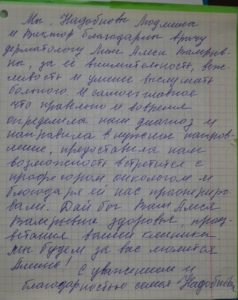 Мы, Надобнова Людмила
и Виктор благодарны врачу
дерматологу Валерьев-
ны, за её внимательность, веж-
ливость и умение выслушать
больного и самое главное
что правильно и вовремя
определила наш диагноз и
направила в нужное направ-
ление, предоставила нам
возможность встретится с
профессором онкологом и
благодаря ей нас прооперир-
вали. Дай бог Вам Алеся
Валерьевна здоровья, проц-
ветания вашей клинике.
Мы будем за вас молится
С уважением и
благодарностью семья